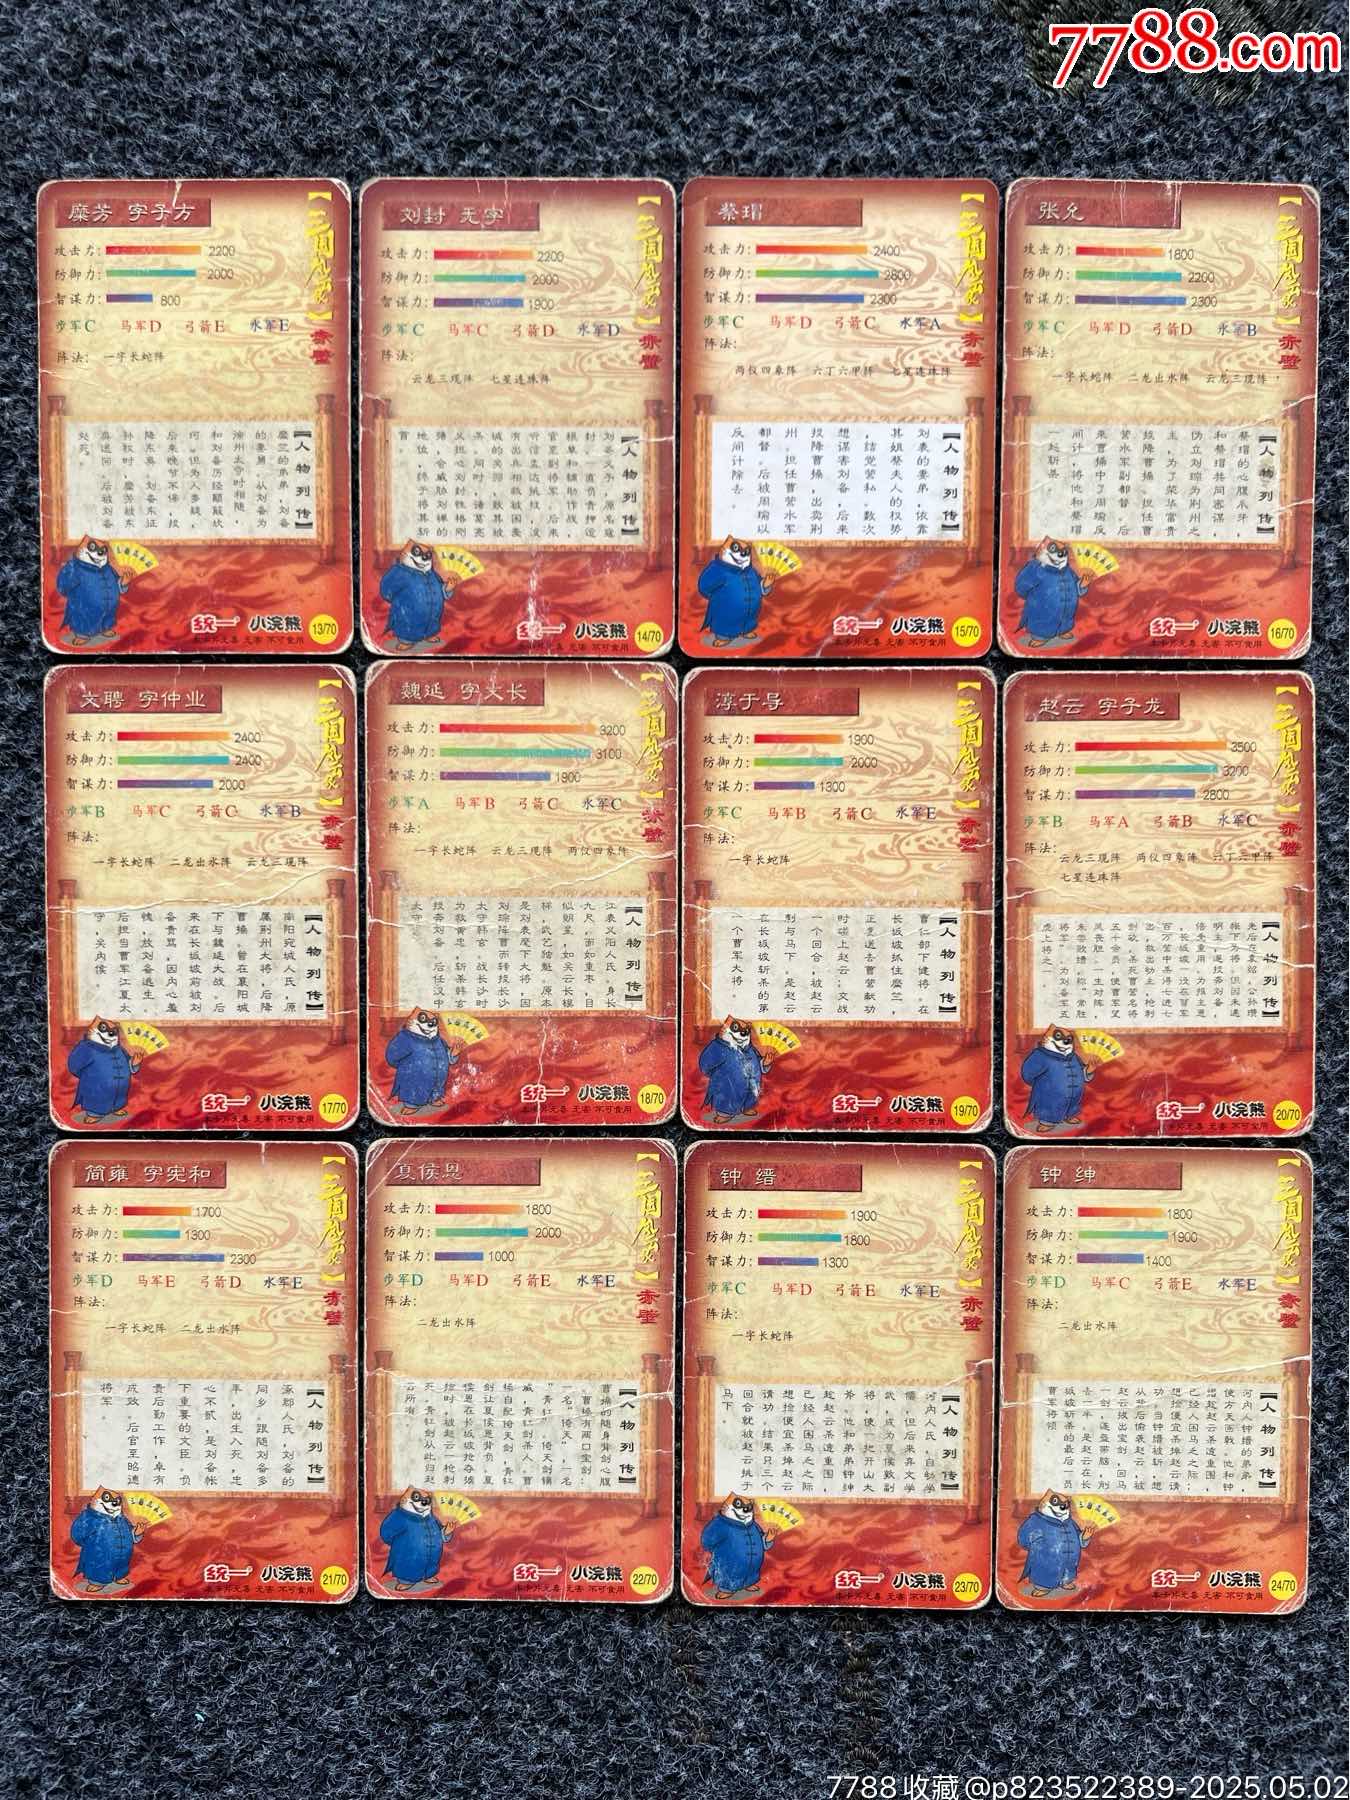 7788.com
糜芳 字子方
攻击力: 2200
防御力: 2000
智谋力: 800
步军C 马军D 弓箭E 水军E
阵法: 一字长蛇阵
【三国风云】赤壁
【人物列传】
糜竺的弟弟，刘备
的妻舅。从刘备为
徐州太守时相随，
和刘备历经颠簸坎
坷。但为人多疑，
后来晚节不保，投
降东吴。刘备东征
孙权时，糜芳被东
吴送回。后被刘备
处死。
统一 小浣熊 13/70
本卡片无毒 无害 不可食用
刘封 无字
攻击力: 2200
防御力: 2000
智谋力: 1900
步军C 马军C 弓箭D 水军D
阵法:
云龙三现阵 七星连珠阵
【三国风云】赤壁
【人物列传】
统一 小浣熊 14/70
本卡片无毒 无害 不可食用
蔡瑁
攻击力: 2400
防御力: 2800
智谋力: 2300
步军C 马军D 弓箭C 水军A
阵法:
两仪四象阵 六丁六甲阵 七星连珠阵
【三国风云】赤壁
【人物列传】
刘表的妻弟，依靠
其姐蔡夫人的权势
，结党营私。数次
想谋害刘备，后来
投降曹操，出卖荆
州。担任曹营水军
都督。后被周瑜以
反间计除去。
统一 小浣熊 15/70
本卡片无毒 无害 不可食用
张允
攻击力: 1800
防御力: 2200
智谋力: 2300
步军C 马军D 弓箭D 水军B
阵法:
一字长蛇阵 二龙出水阵 云龙三现阵
【三国风云】赤壁
【人物列传】
蔡瑁的心腹爪牙，
和蔡瑁共同密谋，
伪立刘琮为荆州之
主，为了荣华富贵
投降曹操。担任曹
营水军副都督。后
来曹操中了周瑜反
间计，将他和蔡瑁
一起斩杀。
统一 小浣熊 16/70
本卡片无毒 无害 不可食用
文聘 字仲业
攻击力: 2400
防御力: 2400
智谋力: 2000
步军B 马军C 弓箭C 水军B
阵法:
一字长蛇阵 二龙出水阵 云龙三现阵
【三国风云】赤壁
【人物列传】
南阳宛城人氏，原
属荆州大将，后降
曹操。曾在襄阳城
下与魏延大战。后
来在长坂坡前被刘
备责骂，因内心羞
愧，放刘备逃生。
后担当曹军江夏太
守，关内侯。
统一 小浣熊 17/70
本卡片无毒 无害 不可食用
魏延 字文长
攻击力: 3200
防御力: 3100
智谋力: 1900
步军A 马军B 弓箭C 水军C
阵法:
一字长蛇阵 云龙三现阵 两仪四象阵
【三国风云】赤壁
【人物列传】
江表义阳人氏。身长
九尺，面如重枣，目
似朗星，如关云长模
样，武艺独魁。原本
是刘表麾下大将，因
刘琮降曹而转投长沙
太守韩玄。战长沙时
为救黄忠，斩杀韩玄
投奔刘备。后任汉中
太守。
统一 小浣熊 18/70
本卡片无毒 无害 不可食用
淳于导
攻击力: 1900
防御力: 2000
智谋力: 1300
步军C 马军B 弓箭C 水军E
阵法:
一字长蛇阵
【三国风云】赤壁
【人物列传】
曹仁部下健将。在
长坂坡抓住糜竺，
正要送去曹营献功
时碰上赵云；交战
一个回合，被赵云
刺与马下。是赵云
在长坂坡斩杀的第
一个曹军大将。
统一 小浣熊 19/70
本卡片无毒 无害 不可食用
赵云 字子龙
攻击力: 3500
防御力: 3200
智谋力: 2800
步军B 马军A 弓箭B 水军C
阵法:
云龙三现阵 两仪四象阵 六丁六甲阵
七星连珠阵
【三国风云】赤壁
【人物列传】
统一 小浣熊 20/70
本卡片无毒 无害 不可食用
简雍 字宪和
攻击力: 1700
防御力: 1300
智谋力: 2300
步军D 马军E 弓箭D 水军E
阵法:
一字长蛇阵 二龙出水阵
【三国风云】赤壁
【人物列传】
涿郡人氏，刘备的
同乡。跟随刘备多
年，出生入死，忠
心不贰，是刘备帐
下重要的文臣。负
责后勤工作，卓有
成效。后官至昭德
将军。
统一 小浣熊 21/70
本卡片无毒 无害 不可食用
夏侯恩
攻击力: 1800
防御力: 2000
智谋力: 1000
步军D 马军D 弓箭E 水军E
阵法:
二龙出水阵
【三国风云】赤壁
【人物列传】
曹操的随身背剑心腹
。曹操有两口宝剑：
一名“倚天”，一名
“青釭”。倚天剑镇
威，青釭剑杀人。曹
操自配倚天剑，青釭
剑让夏侯恩背负。夏
侯恩在长坂坡抢夺掳
掠时，被赵云一枪刺
死。青釭剑从此归赵
云所有。
统一 小浣熊 22/70
本卡片无毒 无害 不可食用
钟 缙
攻击力: 1900
防御力: 1800
智谋力: 1300
步军C 马军D 弓箭E 水军E
阵法:
一字长蛇阵
【三国风云】赤壁
【人物列传】
河内人氏，自幼学
儒，但后来弃文学
武，成为夏侯敦副
将，使一把开山大
斧。他和弟弟钟绅
趁赵云杀透重围，
已经人困马乏之际，
想捡便宜杀掉赵云
请功。结果只三个
回合就被赵云挑于
马下。
统一 小浣熊 23/70
本卡片无毒 无害 不可食用
钟 绅
攻击力: 1800
防御力: 1900
智谋力: 1400
步军D 马军C 弓箭E 水军E
阵法:
二龙出水阵
【三国风云】赤壁
【人物列传】
统一 小浣熊 24/70
本卡片无毒 无害 不可食用
7788收藏@p823522389-2025.05.02